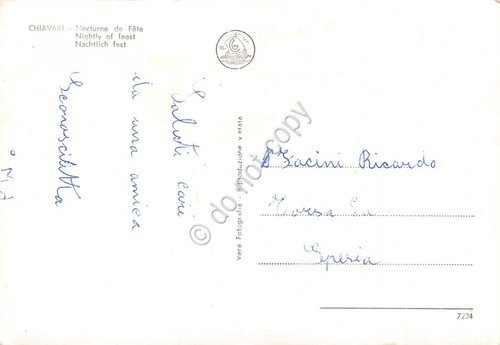 CHIAVARI - Nocturne de Fête
Nightly of feast
Nachtlich fest
Saluti cari
da una amica
Sconosciutta
Vera Fotografia - Riproduzione vietata
Giacini Ricardo
La
Spezia
7234
© do not copy